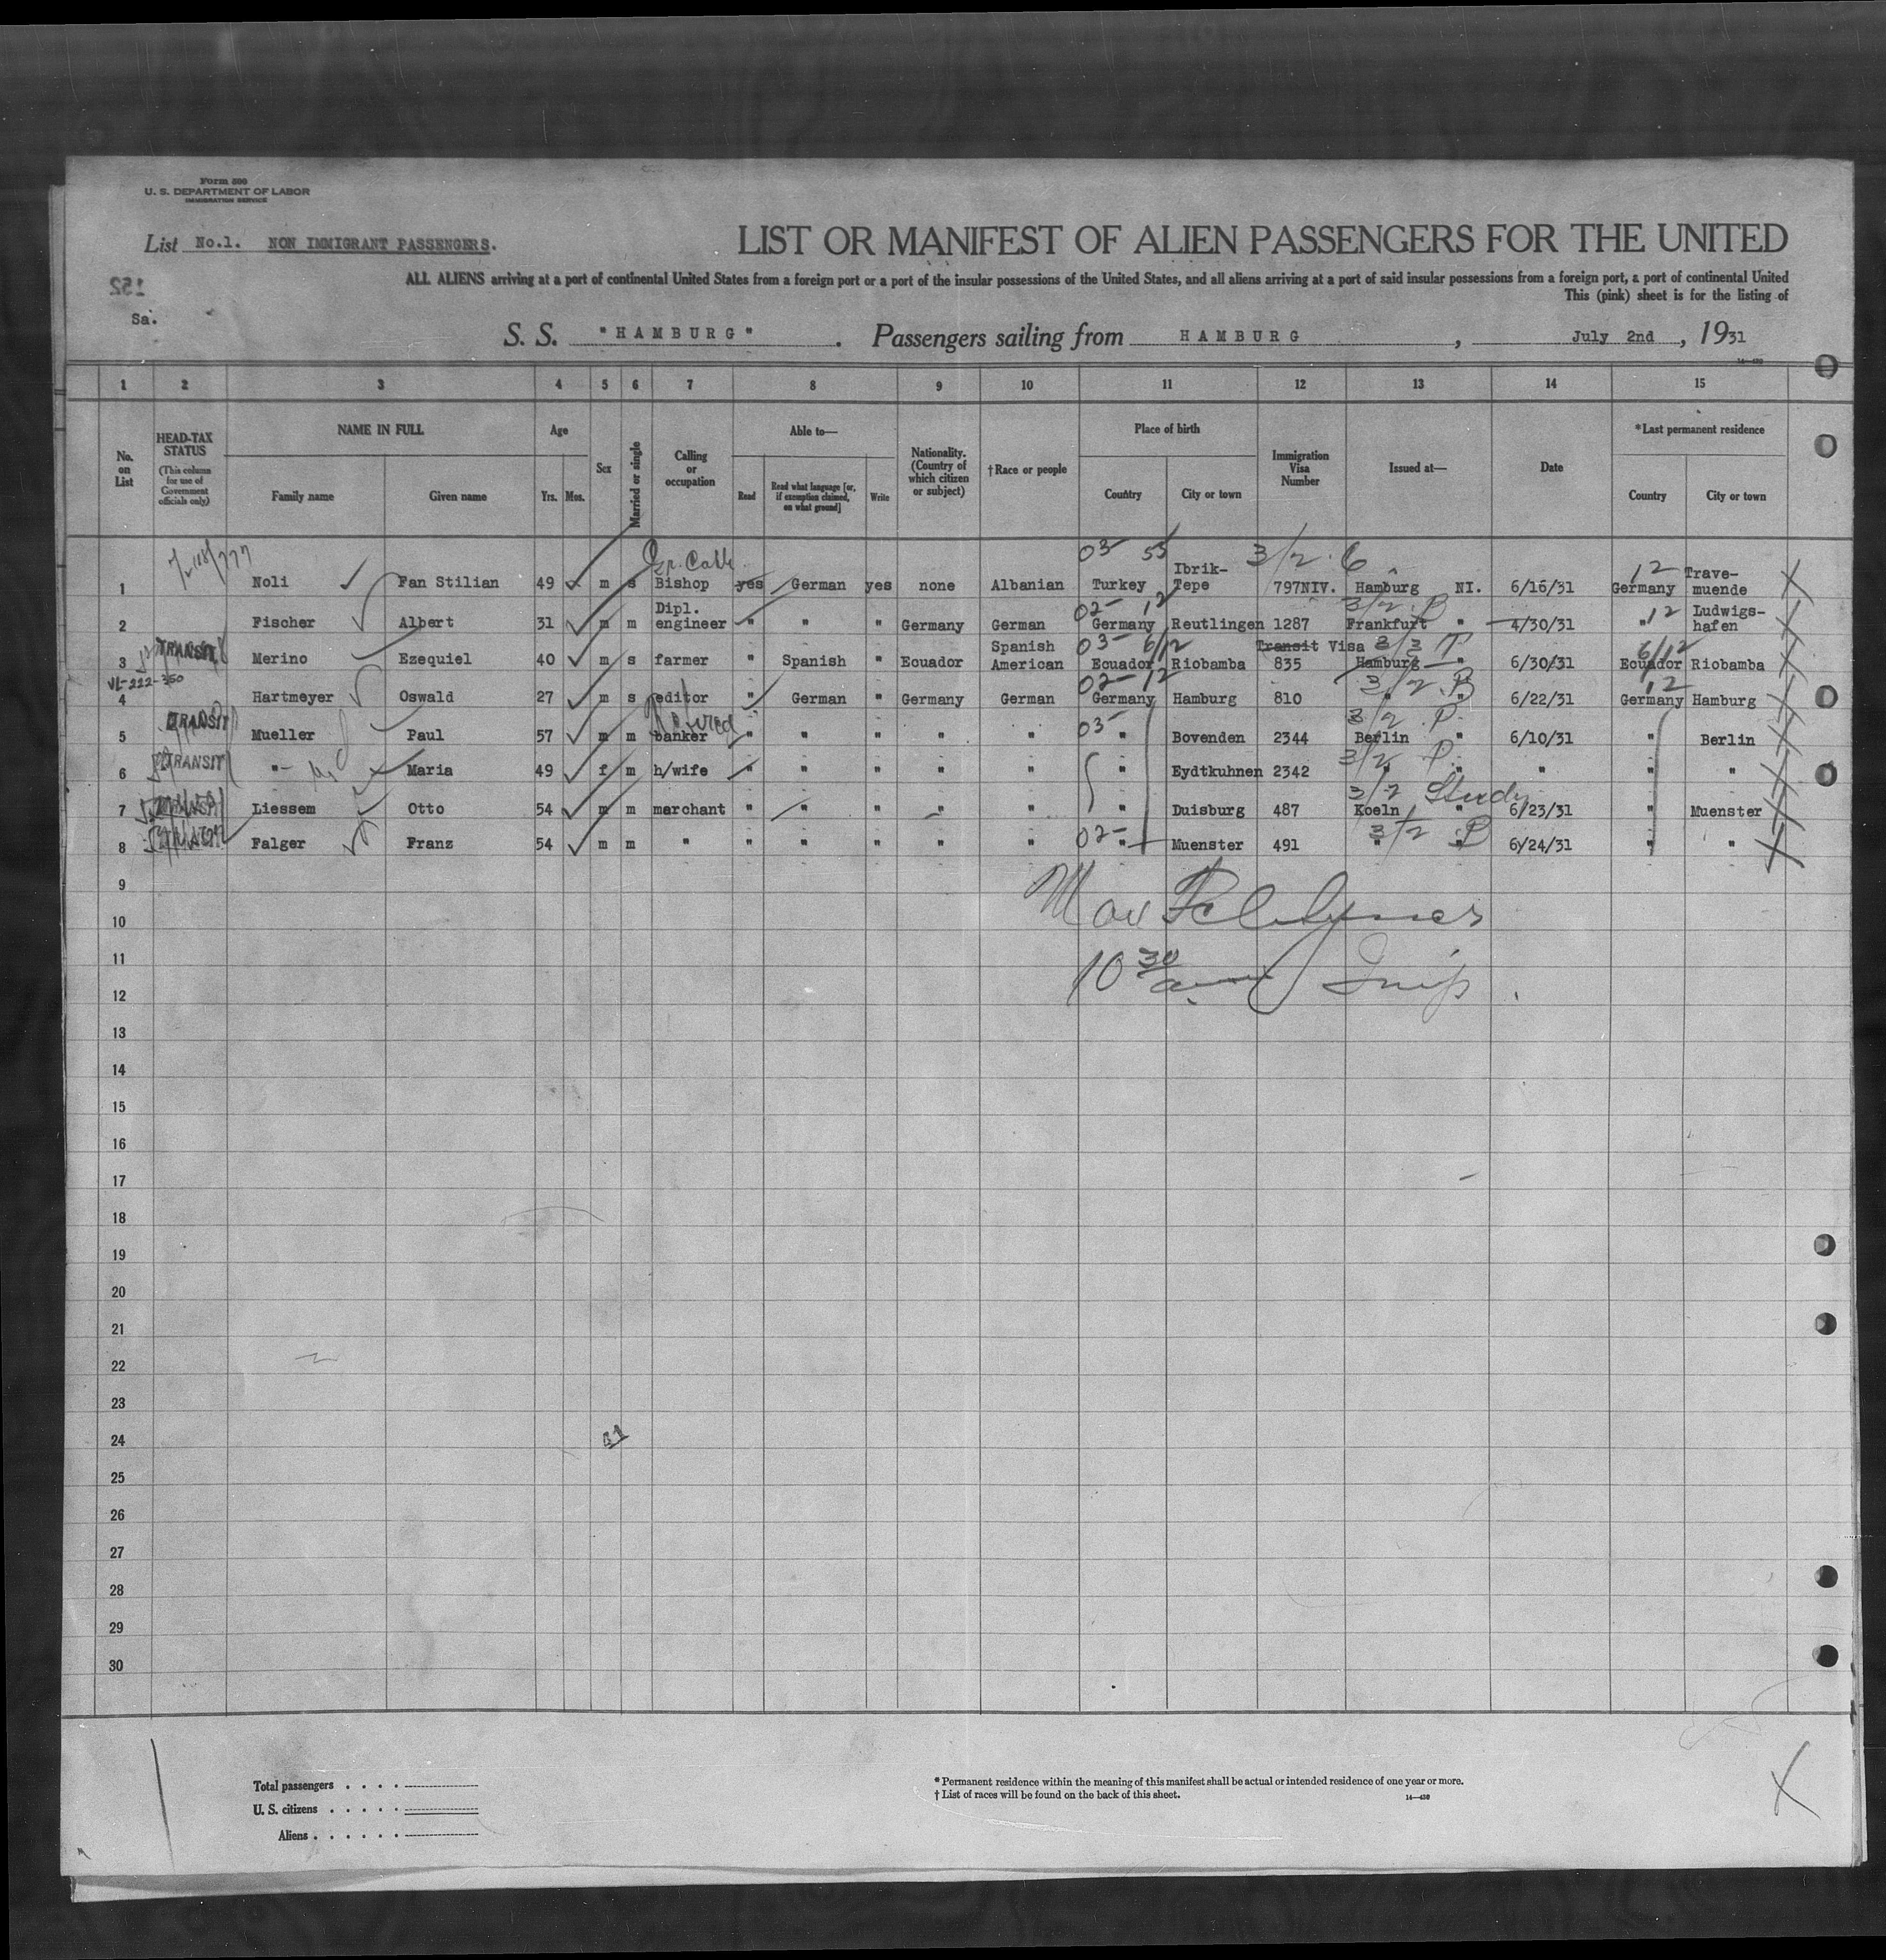 Form 500
U. S. DEPARTMENT OF LABOR
IMMIGRATION SERVICE
List No.1. NON IMMIGRANT PASSENGERS.
LIST OR MANIFEST OF ALIEN PASSENGERS FOR THE UNITED
ALL ALIENS arriving at a port of continental United States from a foreign port or a port of the insular possessions of the United States, and all aliens arriving at a port of said insular possessions from a foreign port, a port of continental United
This (pink) sheet is for the listing of
152
Sa.
S. S. "HAMBURG". Passengers sailing from HAMBURG, July 2nd, 1931
1 2 3 4 5 6 7 8 9 10 11 12 13 14 15
No. on List
HEAD-TAX STATUS (This column for use of Government officials only)
NAME IN FULL Family name Given name
Age Yrs. Mos.
Sex
Married or single
Calling or occupation
Able to— Read Read what language [or, if exemption claimed, on what ground] Write
Nationality. (Country of which citizen or subject)
†Race or people
Place of birth Country City or town
Immigration Visa Number
Issued at—
Date
*Last permanent residence Country City or town
03 55 3/2 . 6 12
1 Noli Fan Stilian 49 m s Bishop yes German yes none Albanian Turkey Ibrik-Tepe 797NIV. Hamburg NI. 6/16/31 Germany Trave-muende
02- 12 3/2 . B 12
2 Fischer Albert 31 m m Dipl. engineer " " " Germany German Germany Reutlingen 1287 Frankfurt " 4/30/31 " Ludwigs-hafen
03- 6/12 3/3 T 6/12
3 TRANSIT Merino Ezequiel 40 m s farmer " Spanish " Ecuador Spanish American Ecuador Riobamba Transit Visa 835 Hamburg " 6/30/31 Ecuador Riobamba
VL-222-350
02-12 3/2 . B 12
4 Hartmeyer Oswald 27 m s editor " German " Germany German Germany Hamburg 810 " " 6/22/31 Germany Hamburg
retired 03- 3/2 . P.
5 TRANSIT Mueller Paul 57 m m banker " " " " " " Bovenden 2344 Berlin " 6/10/31 " Berlin
3/2 P.
6 TRANSIT "- Maria 49 f m h/wife " " " " " " Eydtkuhnen 2342 " " " " "
3/2 Study
7 TRANSIT Liessem Otto 54 m m marchant " " " " " " Duisburg 487 Koeln " 6/23/31 " Muenster
02- 3/2 B
8 TRANSIT Falger Franz 54 m m " " " " " " " Muenster 491 " " 6/24/31 " "
9
10
11 10 30 am Insp
12
13
14
15
16
17
18
19
20
21
22
23
24
25
26
27
28
29
30
Total passengers . . . .
U. S. citizens . . . . .
Aliens . . . . . .
* Permanent residence within the meaning of this manifest shall be actual or intended residence of one year or more.
† List of races will be found on the back of this sheet.
14—430